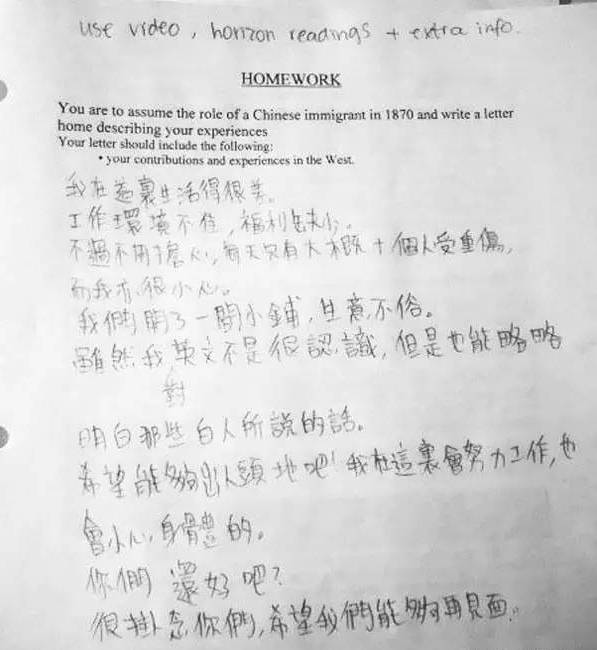 use video, horizon readings + extra info.
HOMEWORK
You are to assume the role of a Chinese immigrant in 1870 and write a letter
home describing your experiences
Your letter should include the following:
• your contributions and experiences in the West.
我在這裏生活得很差。
工作環境不佳，福利也缺少。
不過不用擔心，每天只有大概十個人受重傷，
而我亦很小心。
我們開了一間小鋪，生意不俗。
雖然我英文不是很認識，但是也能略略
對
明白那些白人所說的話。
希望能夠出人頭地吧！我在這裏會努力工作，也
會小心身體的。
你們還好吧？
很掛念你們，希望我們能夠再見面。